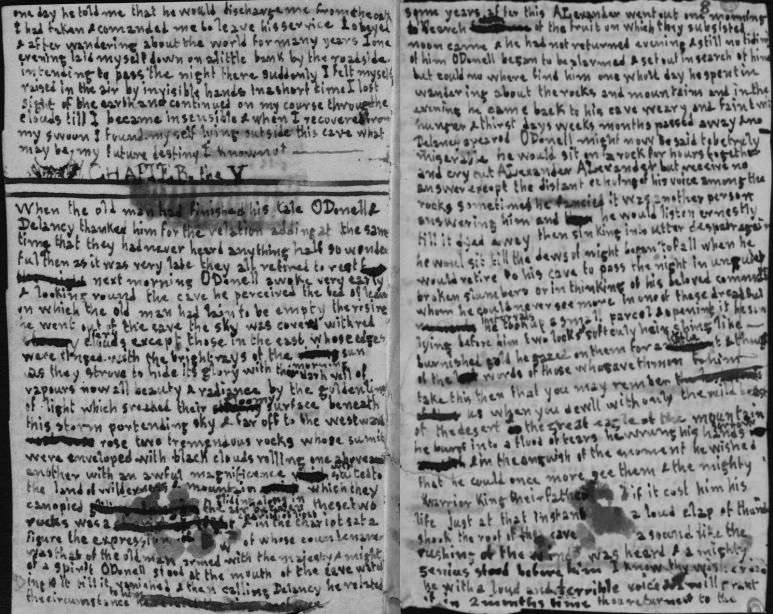 one day he told me that he would discharge me from the oath
I had taken & comanded me to leave his service I obeyed
& after wandering about the world for many years I one
evening laid myself down on a little bank by the roadside
intending to pass the night there suddonly I felt myself
raised in the air by invisible hands in a short time I lost
sight of the earth and continued on my course through the
clouds till I became insensible & when I recovered from
my swoon I found myself lying outside this cave what
may be my future destiny I know not
CHAPTER the V
When the old man had finished his tale ODonell &
Delancy thanked him for the relation adding at the same
time that they had never heard anything half so wonder
ful then as it was very late they all retired to rest
next morning ODonell awoke very early
& looking round the cave he perceived the bed of leaves
on which the old man had lain to be empty then rising
he went out of the cave the sky was coverd with red
clouds except those in the east whose edges
were tinged with the bright rays of the morning sun
as they strove to hide its glory with their dark veil of
vapours now all beauty & radiance by the golden line
of light which streaked their gloomy surface beneath
this storm portending sky & far off to the westward
rose two tremendous rocks whose sumits
were enveloped with black clouds rolling one above
another with an awful magnificence well suited to
the land of wilderness & mountain which they
canopied in the air between these two
rocks was a & in the chariot sat a
figure the expression of whose countenance
was that of the old man armed with the majesty & might
of a spirit ODonell stood at the mouth of the cave
it till it vanished & then calling Delancy he related
the circumstance to him
some years after this Alexander went out one morning
to search of the fruit on which they subsisted
noon came & he had not returned evening & still no tidings
of him ODonell began to be alarmed & set out in search of him
but could no where find him one whole day he spent in
wandering about the rocks and mountains and in the
evening he came back to his cave weary and faint with
hunger & thirst days weeks months passed away & no
Delancy apeared ODonell might now be said to be truly
miserable he would sit on a rock for hours together
and cry out Alexander Alexander but receive no
answer except the distant echoing of his voice among the
rocks sometimes he fancied it was another person
answering him and he would listen earnestly
till it died away then sinking into utter despair again
he woul sit till the dews of night began to fall when he
would retire to his cave to pass the night in unquiet
broken slumbers or in thinking of his beloved
whom he could never see more in one of these dreadful
he took up a small parcel & opening it he saw
lying before him two locks of hair shining like
burnished gold he gazed on them for a & thought
of the words of those who gave them to him
take this then that you may remember
us when you dewell with only the wild
of the desert the great eagle of the mountain
he burst into a flood of tears he wrung his hands
& in the anguish of the moment he wished
that he could once more see them & the mighty
Warrior King their father if it cost him his
life just at that instant a loud clap of thunder
shook the roof of the cave a sound like the
rushing of the wind was heard & a mighty
Genius stood before him I know thy wish cried
he with a loud and terrible voice & I will grant
it in 2 months time thou returnest to the